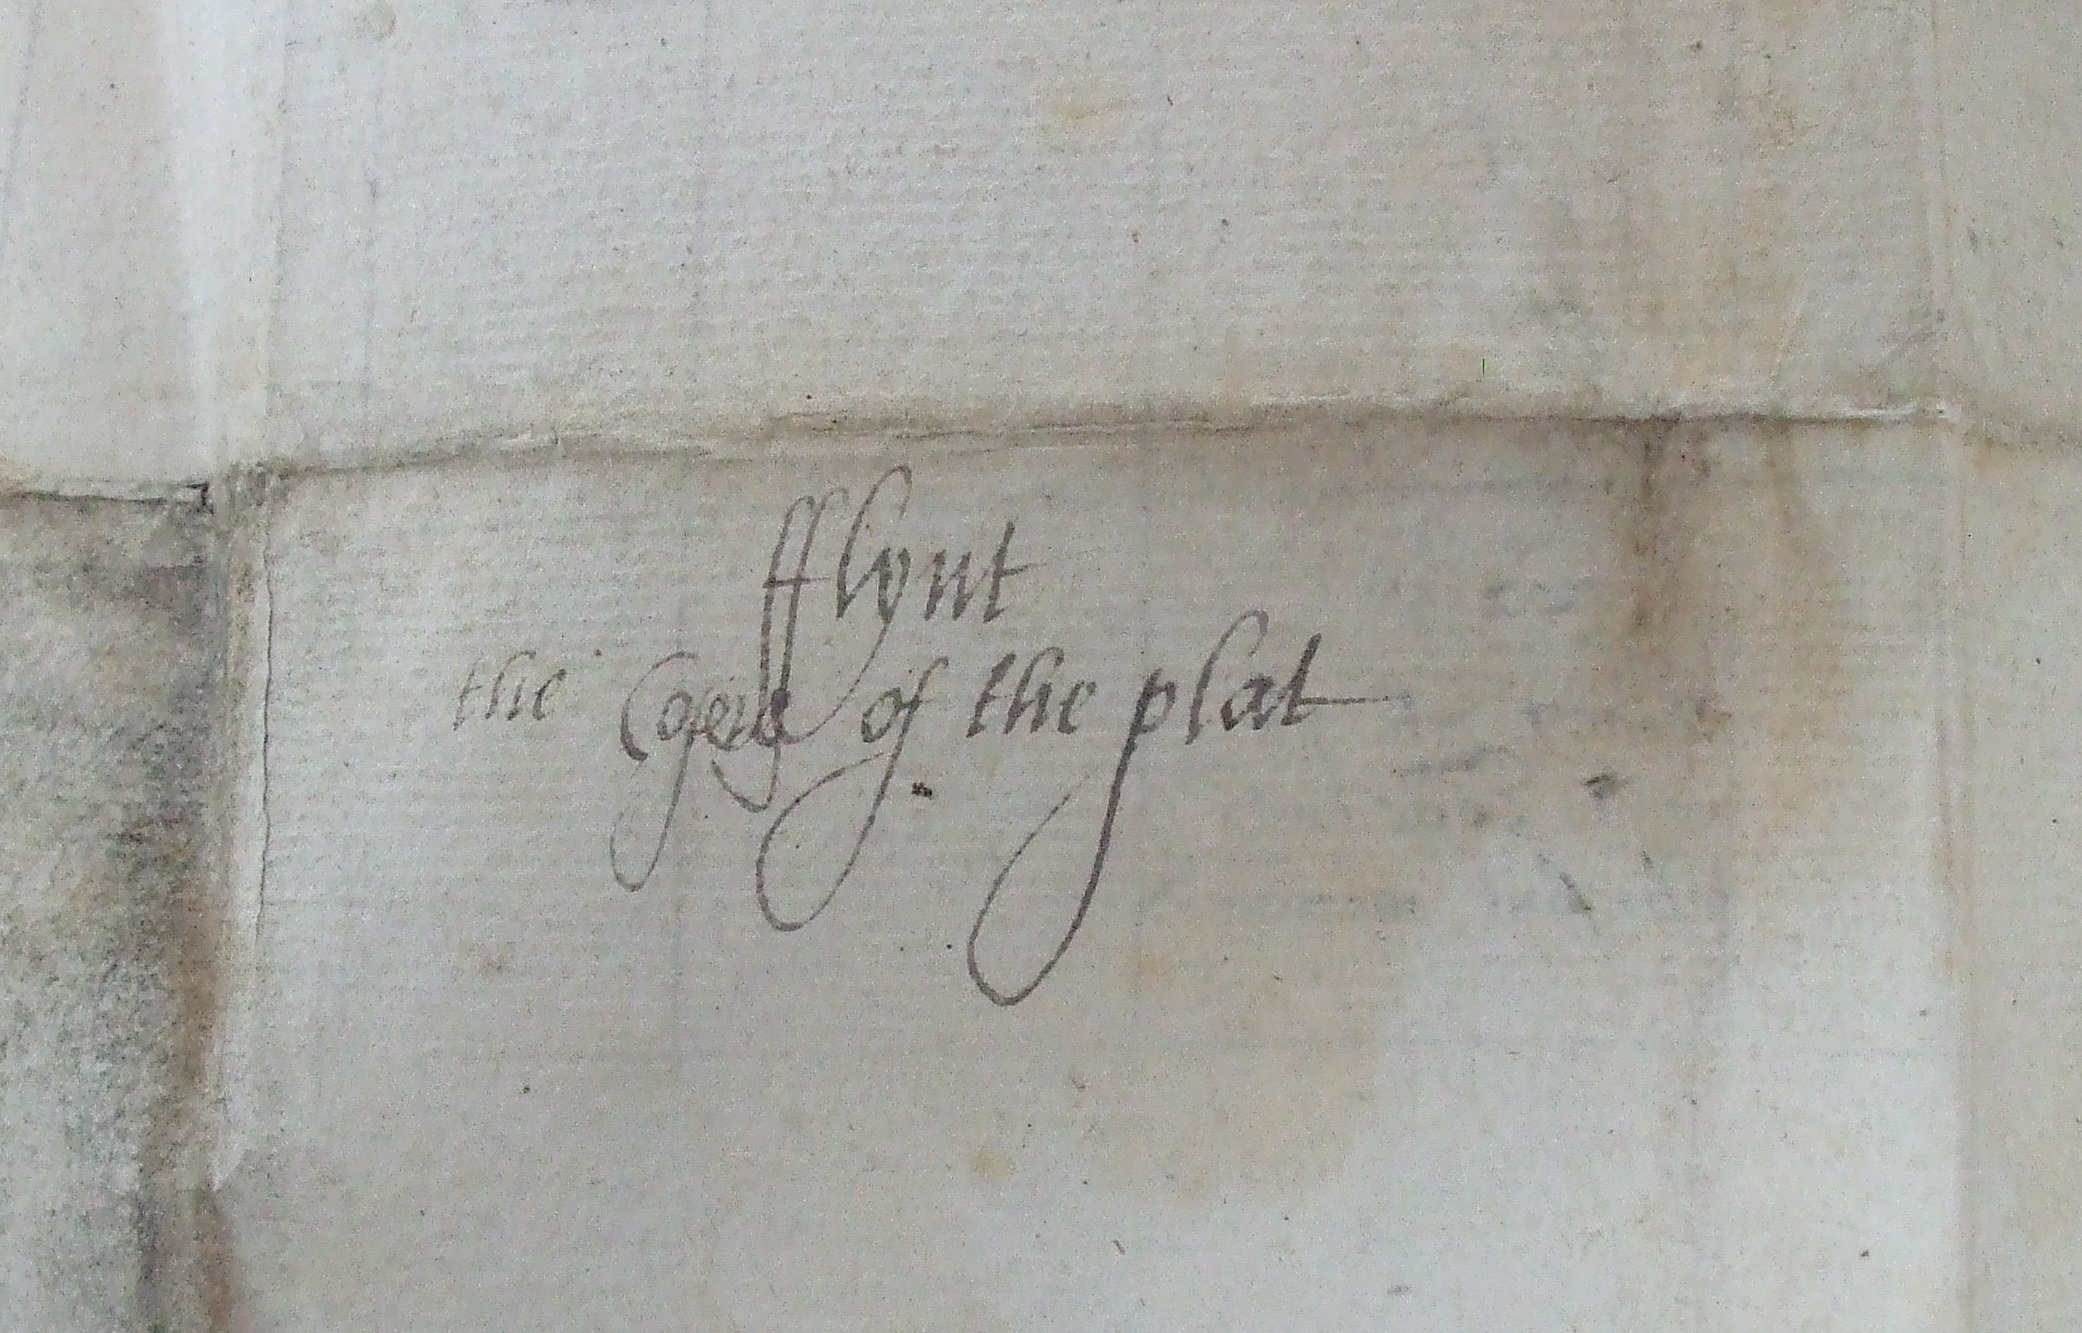 fflynt
the Copeye of the plat